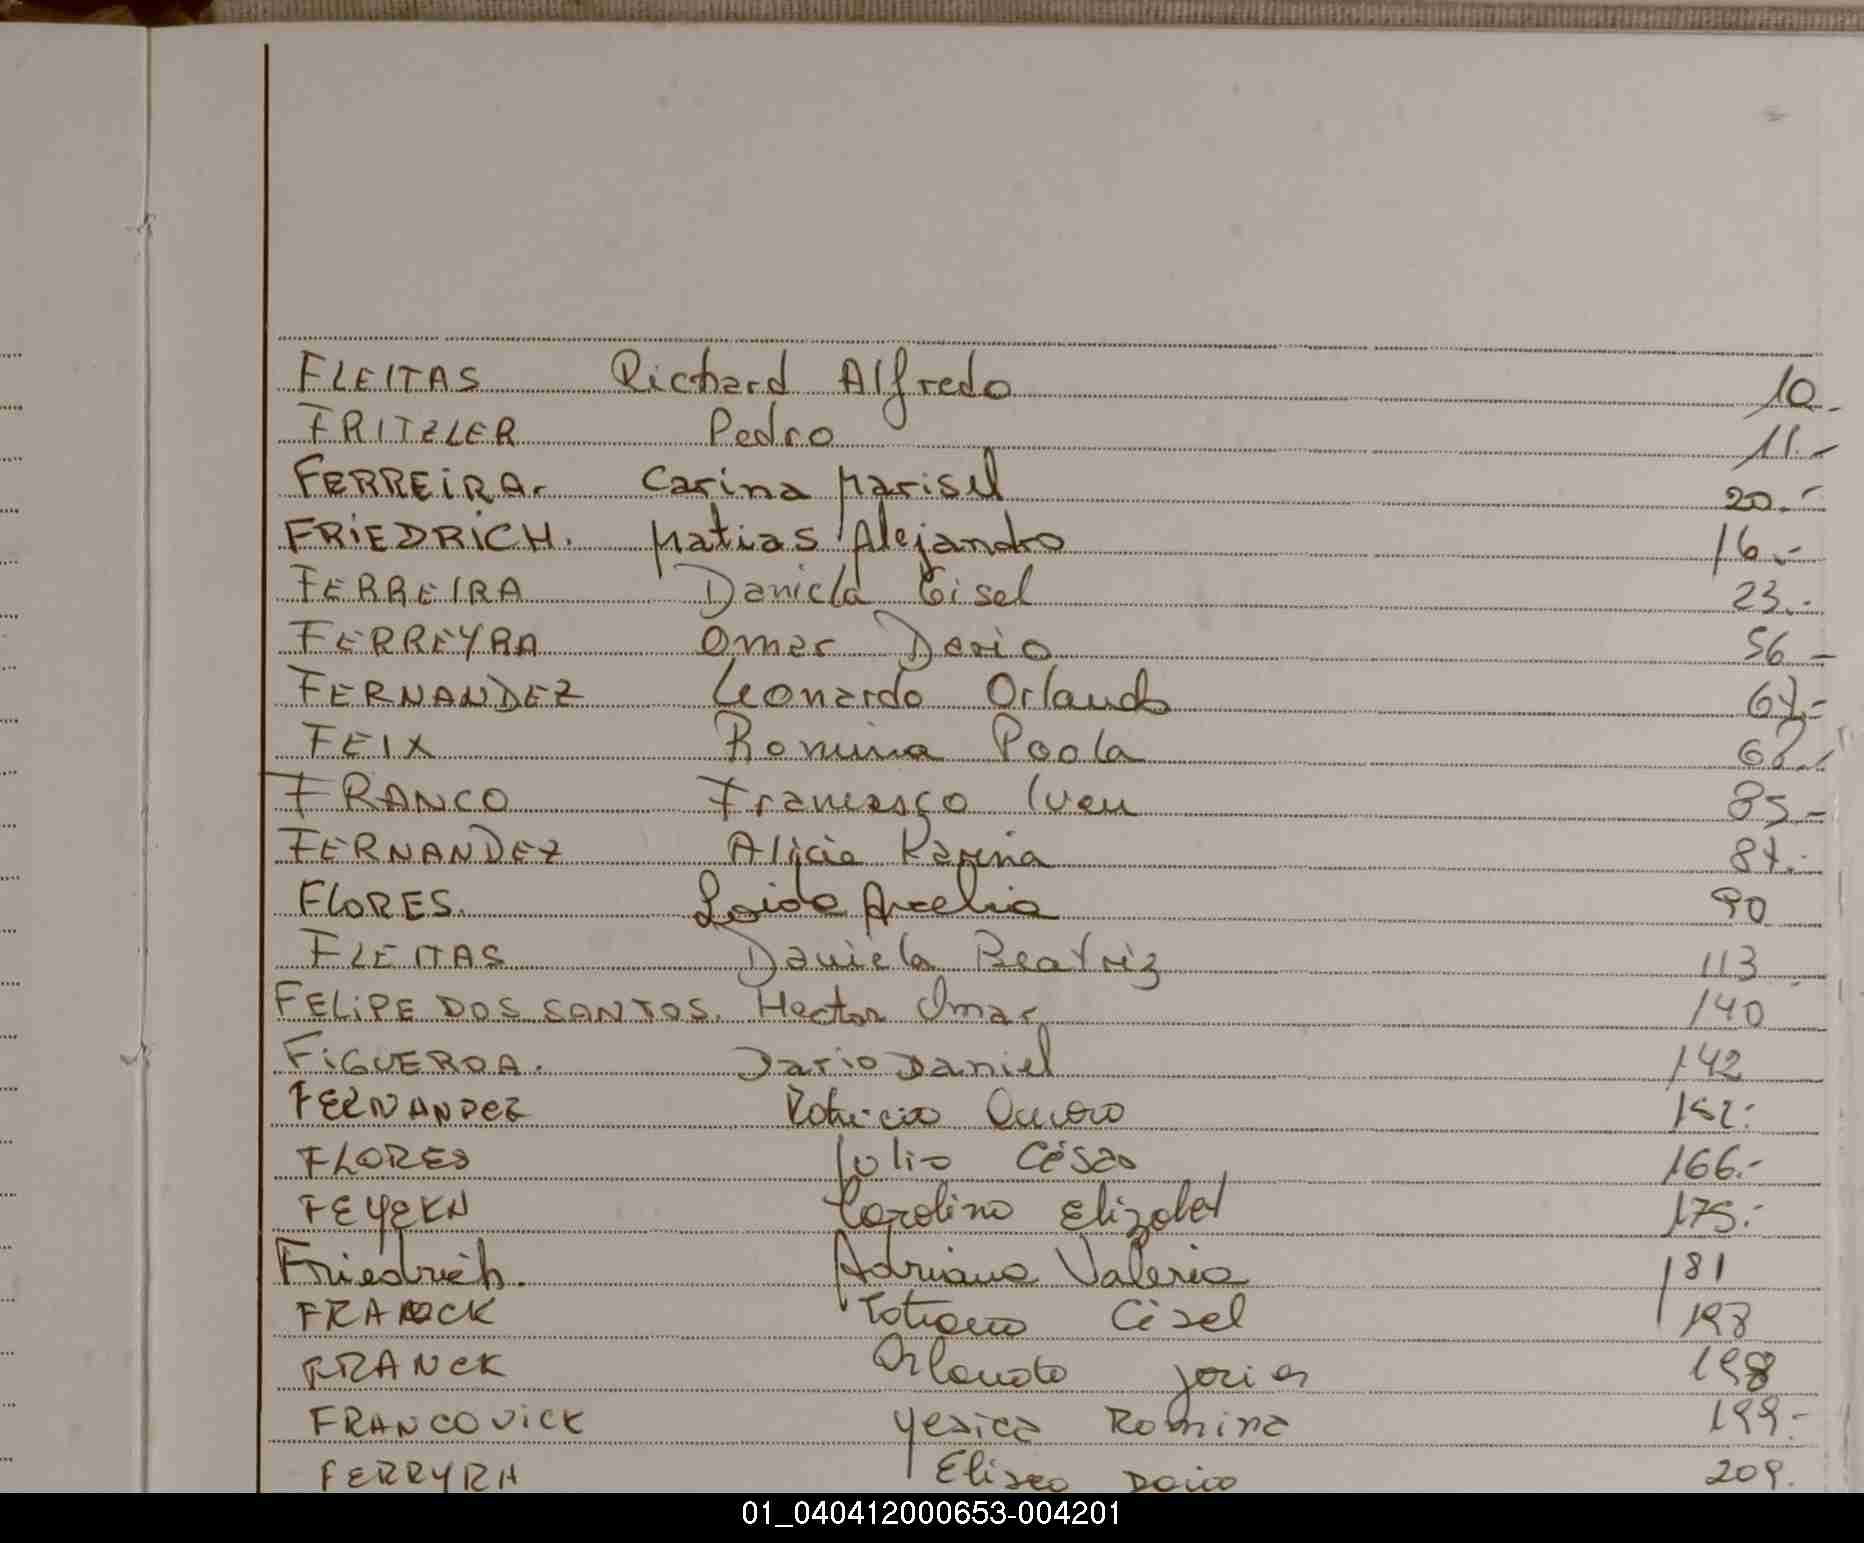 FLEITAS Richard Alfredo 10.-
FRITZLER Pedro 11.-
FERREIRA. Carina Marisel 20.-
FRIEDRICH. Matias Alejandro 16.-
FERREIRA Daniela Gisel 23.-
FERREYRA Omar Dario 56-
FERNANDEZ Leonardo Orlando 67.-
FEIX Romina Paola
FRANCO Francesco Ivan 85.-
FERNANDEZ Alicia Karina 87.-
FLORES. 90
FLEITAS Daniela Beatriz 113
FELIPE DOS SANTOS. Hector Omar 140
FIGUEROA. Dario Daniel 142
FERNANDEZ
FLORES Julio César 166.-
Carolina Elizabet 175.-
Friedrich. Adriana Valeria 181
Gisel
FRANCK Orlando Javier 198
FRANCOVICK Yesica Romina 199.-
FERRYRA Eliseo 209.
01_040412000653-004201